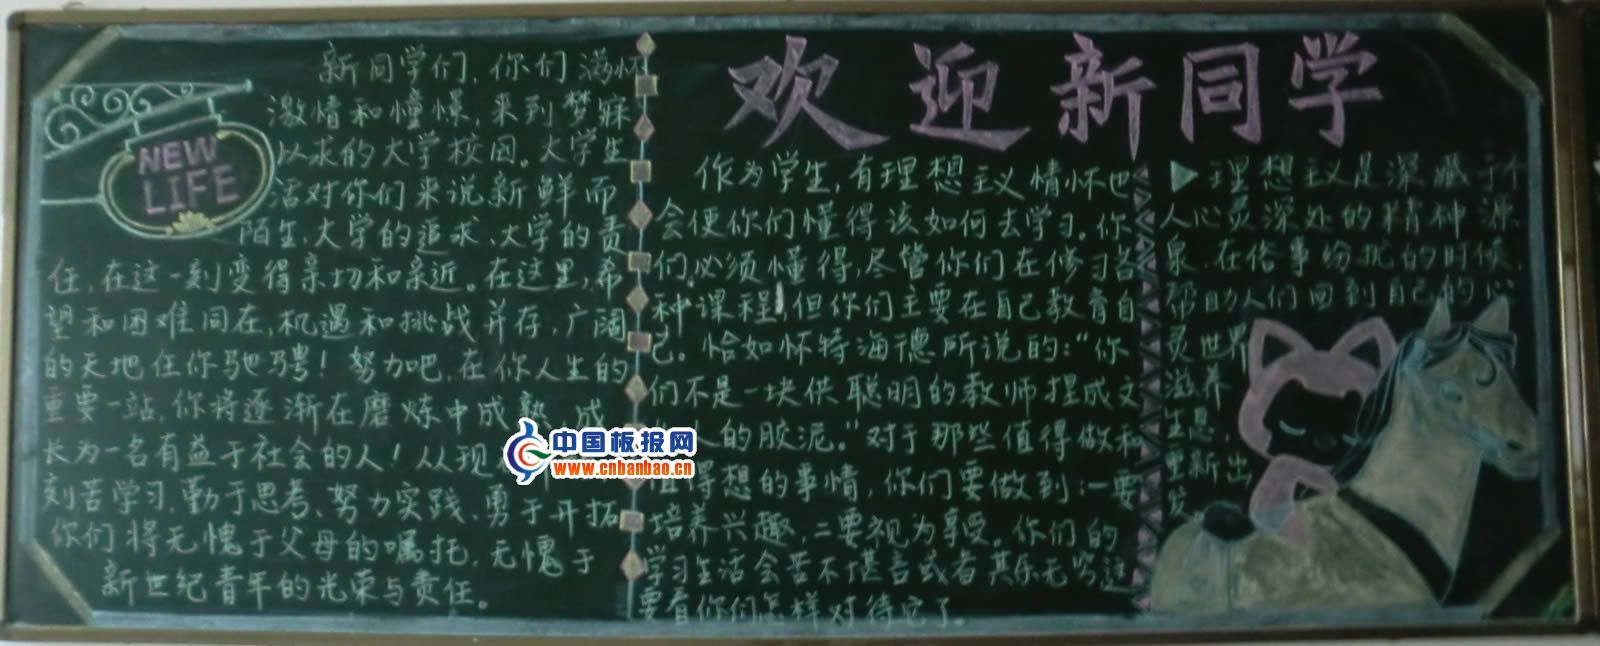 欢迎新同学
NEW
LIFE
新同学们，你们满怀
激情和憧憬，来到梦寐
以求的大学校园。大学生
活对你们来说新鲜而
陌生，大学的追求、大学的责
任，在这一刻变得亲切和亲近。在这里，希
望和困难同在，机遇和挑战并存，广阔
的天地任你驰骋！努力吧，在你人生的
重要一站，你将逐渐在磨炼中成熟，成
长为一名有益于社会的人！从现
刻苦学习，勤于思考、努力实践、勇于开拓
你们将无愧于父母的嘱托，无愧于
新世纪青年的光荣与责任。
作为学生，有理想主义情怀也
会使你们懂得该如何去学习。你
们必须懂得，尽管你们在修习各
种课程，但你们主要在自己教育自
己。恰如怀特海德所说的：“你
们不是一块供聪明的教师捏成文
人的胶泥。”对于那些值得做和
值得想的事情，你们要做到：一要
培养兴趣，二要视为享受。你们的
学习生活会苦不堪言或者其乐无穷这
要看你们怎样对待它了。
▶理想主义是深藏于个
人心灵深处的精神源
泉，在俗事纷扰的时候，
帮助人们回到自己的心
灵世界
滋养
生息
重新出
发。
中国板报网
www.cnbanbao.cn